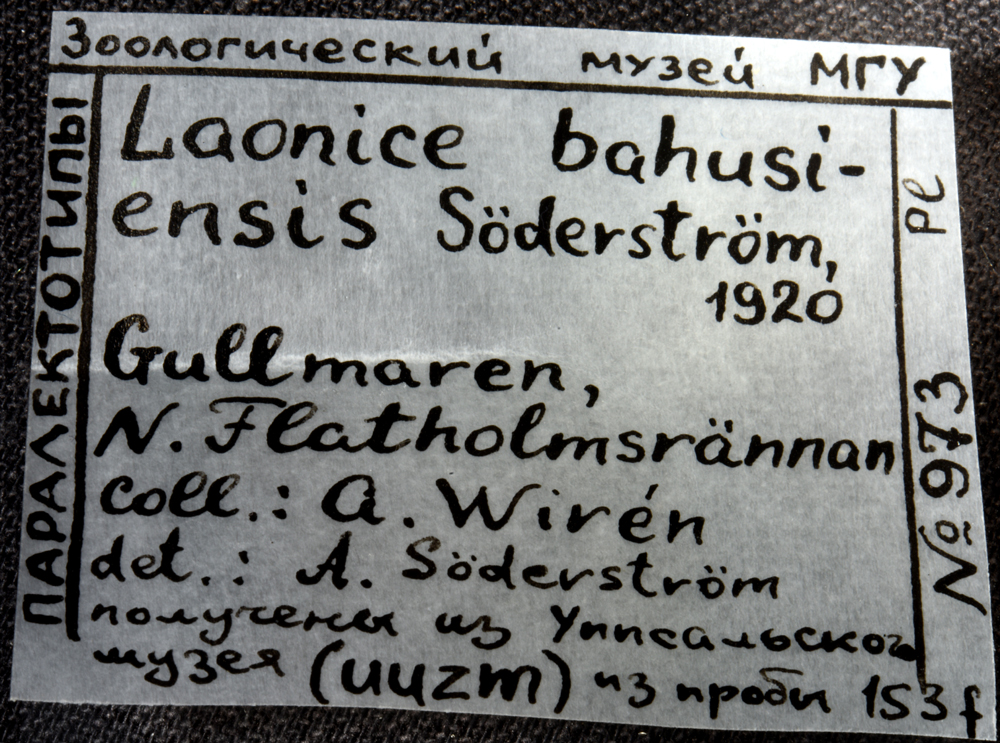 Зоологический музей МГУ
ПАРАЛЕКТОТИПЫ
Laonice bahusi-
ensis Söderström,
1920
Gullmaren,
N. Flatholmsrännan
coll.: A. Wirén
det.: A. Söderström
получены из Уппсальского
музея (UUZM) из пробы 153f
Pl
№ 973